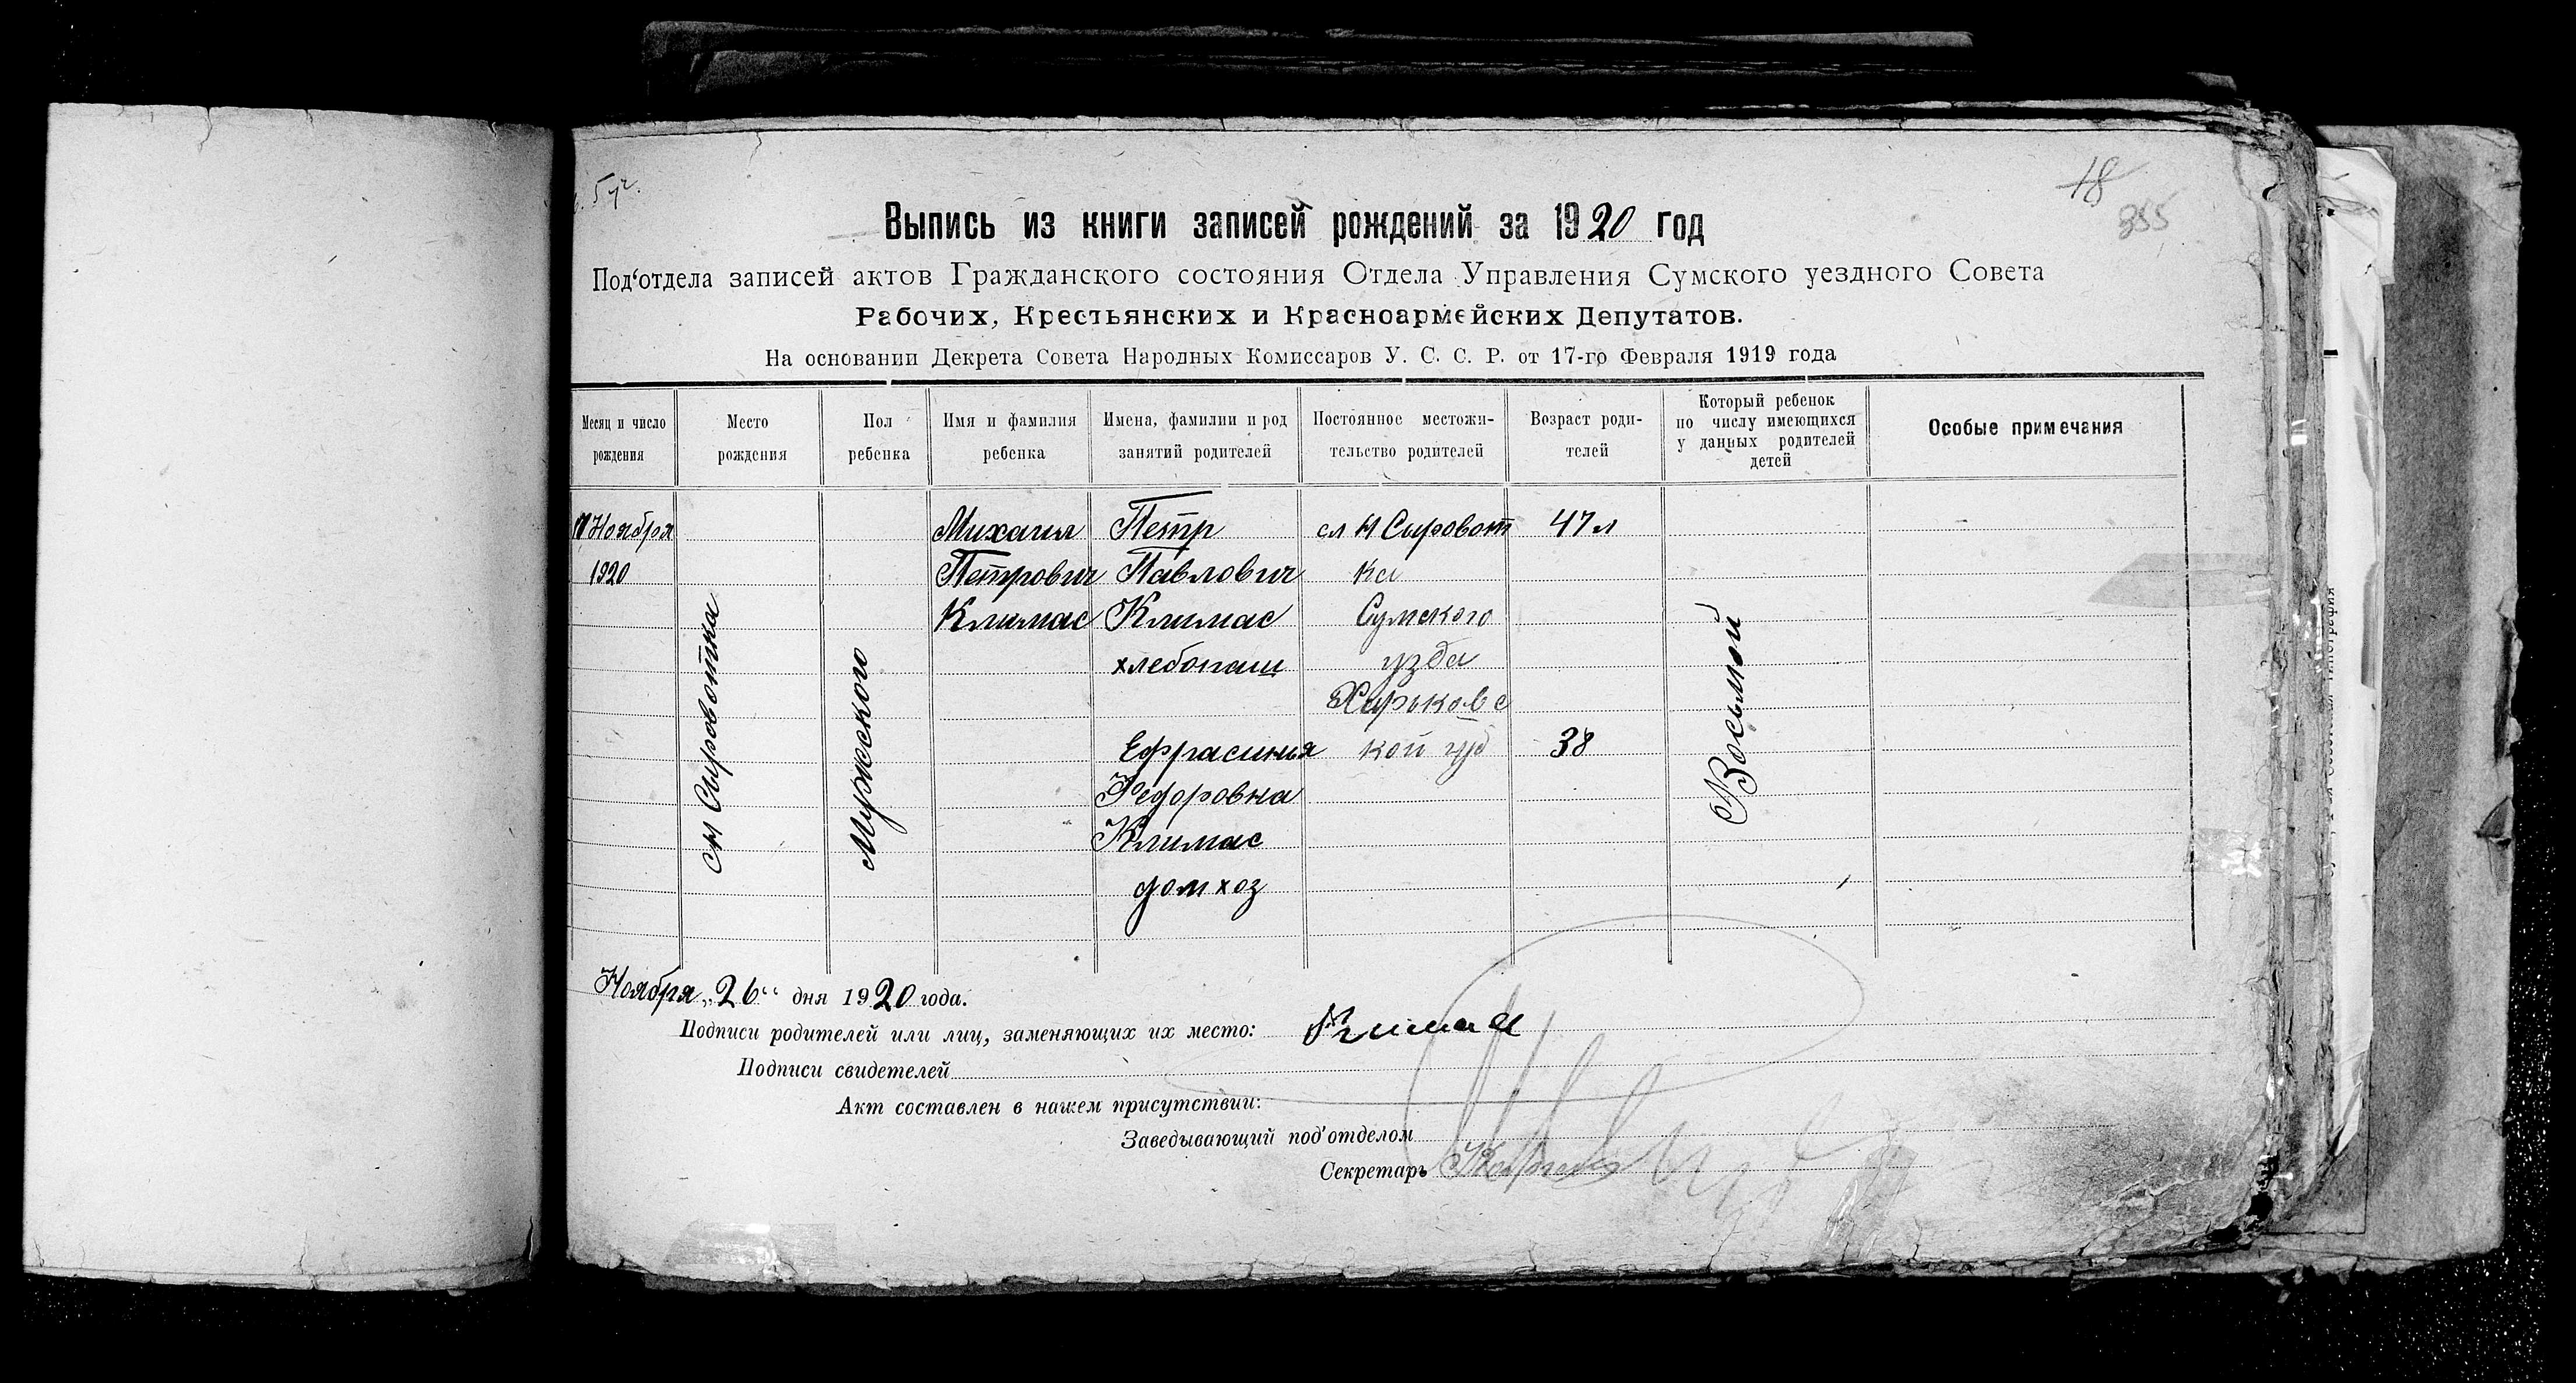 5 уч.
18
355
Выпись из книги записей рождений за 1920 год
Под‘отдела записей актов Гражданского состояния Отдела Управления Сумского уездного Совета
Рабочих, Крестьянских и Красноармейских Депутатов.
На основании Декрета Совета Народных Комиссаров У. С. С. Р. от 17-го Февраля 1919 года
Месяц и число рождения
Место рождения
Пол ребенка
Имя и фамилия ребенка
Имена, фамилии и род занятий родителей
Постоянное местожительство родителей
Возраст родителей
Который ребенок по числу имеющихся у данных родителей детей
Особые примечания
Ноября
1920
Н Сыровотка
Мужеского
Михаил
Петрович
Климас
Петр
Павлович
Климас
хлебопаш
Ефрасиния
Федоровна
Климас
дом хоз
сл Н Сыровот
ка
Сумского
узда
Харьковс
кой губ
47 л
38
Восьмой
Ноября „26“ дня 1920 года.
Подписи родителей или лиц, заменяющих их место: Климас
Подписи свидетелей
Акт составлен в нашем присутствии:
Заведывающий под‘отделом
Секретарь